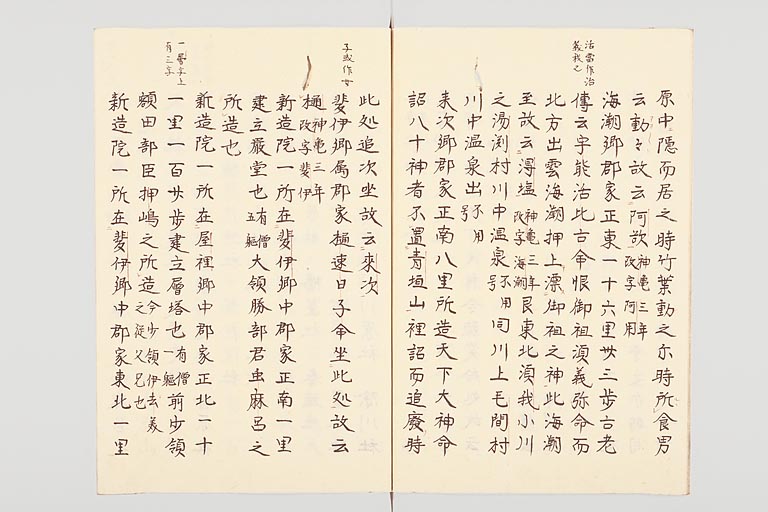 原中隠而居之時竹葉動之尓時所食男
云動〻故云阿欲神亀三年改字阿用
海潮郷郡家正東一十六里卅三歩古老
傳云宇能活比古命恨御祖須義弥命而
北方出雲海潮押上漂御祖之神此海潮
至故云得塩神亀三年改字海潮艮東北須我小川
之湯渕村川中温泉不用号同川上毛間村
川中温泉出不用号
来次郷郡家正南八里所造天下大神命
詔八十神者不置青垣山裡詔而追廢時
活雷作治
義我乙
此処追次坐故云来次
斐伊郷属郡家樋速日子命坐此処故云
樋神亀三年改字斐伊
新造院一所在斐伊郷中郡家正南一里
建立厳堂也有僧五軀大領勝部君虫麻呂之
所造也
新造院一所在屋裡郷中郡家正北一十
一里一百廿歩建立層塔也有僧一軀前少領
額田部臣押嶋之所造今少領伊去美之従父兄也
新造院一所在斐伊郷中郡家東北一里
子或作女
一層字上
有三字